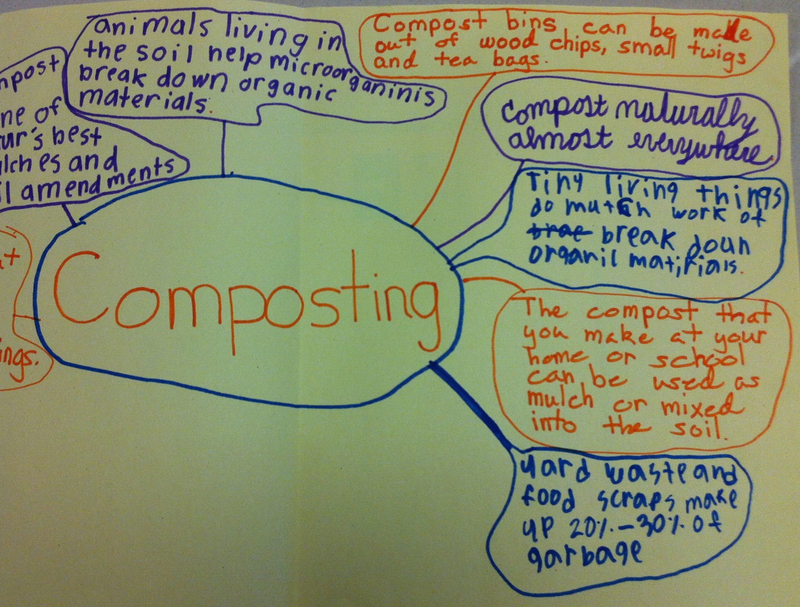 animals living in
the soil help microorganinis
break down organic
materials.
Compost bins can be made
out of wood chips, small twigs
and tea bags.
compost naturally
almost everywhere
Tiny living things
do mutch work of
break doun
organil matirials.
The compost that
you make at your
home or school
can be used as
mulch or mixed
into the soil.
yard waste and
food scraps make
up 20%-30% of
garbage
Composting
mpost
ne of
ur's best
lches and
il amendments
at
ings.